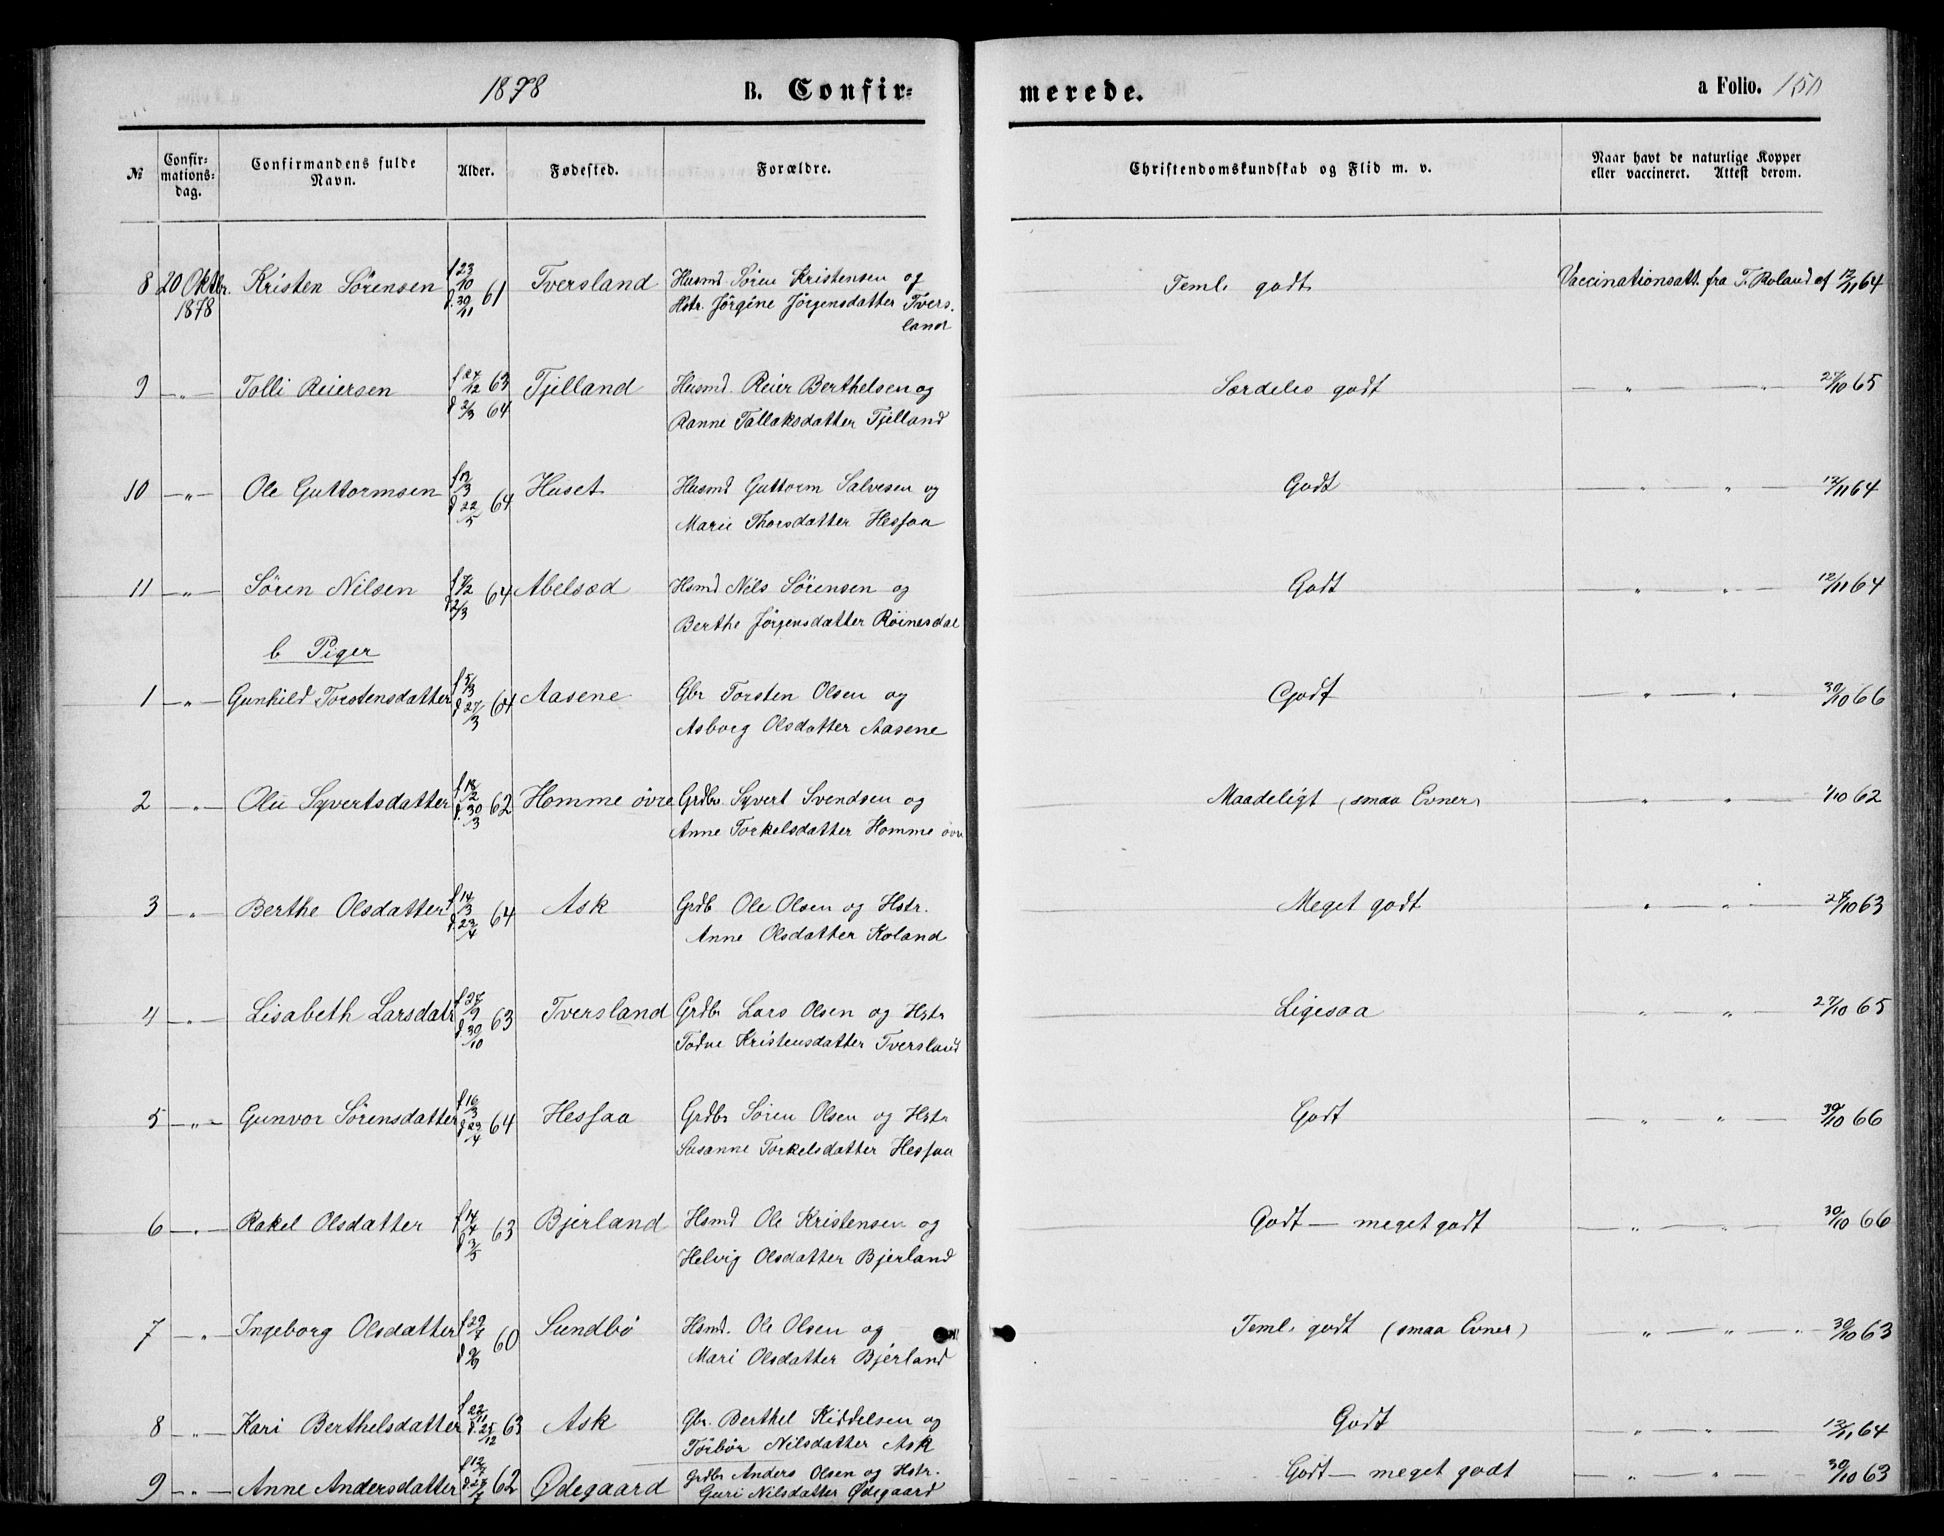 1878 B. Confir= merede. a Folio. 150
№ Confir=mations=dag. Confirmandens fulde Navn. Alder. Fødested. Forældre. Christendomskundskab og Flid m. v. Naar havt de naturlige Kopper eller vaccineret. Attest derom.
8 20 Oktbr. 1878 Kristen Sörensen f 23/10 d. 30/11 61 Tversland Husmd Sören Kristensen og Teml. godt Vaccinationsatt. fra T. Roland af 12/11 64
Hstr. Jörgine Jörgensdatter Tvers-
land
9 —„— Tolli Reiersen f 27/12 63 d 2/3 64 Tjelland Husmd. Reier Berthelsen og Særdeles godt — „ — „ 27/10 65
Ranne Tallaksdatter Tjelland
10 —„— Ole Guttormsen f 13/3 d 22/5 64 Huset Husmd Guttorm Salvesen og Godt „ — „ — 12/11 64
Marie Thorsdatter Hesfaa
11 —„— Sören Nilsen f 7/2 d 2/3 64 Abelsæd Hsmd Nils Sörensen og Godt — „ — „ — 12/11 64
Berthe Jörgensdatter Röinesdal
b Piger
1 —„— Gunhild Torstensdatter f 5/3 d 27/3 64 Aasene Gbr Torsten Olsen og Godt „ — „ — 30/10 66
Asborg Olsdatter Aasene
2 —„— Olu Syvertsdatter f 18/2 d. 30/3 62 Homme övre Grdbr Syvert Svendsen og Maadeligt (smaa Evner) — „ — „ — 1/10 62
Anne Torkelsdatter Homme övre
3 —„— Berthe Olsdatter f 14/3 d. 23/4 64 Ask Grdb Ole Olsen og Hstr. Meget godt „ — „ — 27/10 63
Anne Olsdatter Koland
4 —„— Lisabeth Larsdatr f 27/9 d 30/10 63 Tversland Grdbr Lars Olsen og Hstr Ligesaa „ — „ — 27/10 65
Todne Kristensdatter Tversland
5 —„— Gunvor Sörensdatter f 16/3 d 23/4 64 Hesfaa Grdbr Sören Olsen og Hstr Godt „ — „ — 30/10 66
Susanne Torkelsdatter Hesfaa
6 —„— Rakel Olsdatter f 14/4 d 3/5 63 Bjerland Hsmd Ole Kristensen og Godt — meget godt — „ — „ — 30/10 66
Helvig Olsdatter Bjerland
7 —„ Ingeborg Olsdatter 60 Sundbö Hsmd. Ole Olsen og Teml. godt (smaa Evner) — „ — „ — „ 30/10 63
Mari Olsdatter Bjerland
8 —„— Kari Berthelsdatter f 22/11 d. 25/12 63 Ask Gbr. Berthel Kiddelsen og Godt — „ — „ — 12/11 64
Törbör Nilsdatter Ask
9 —„— Anne Andersdatter 62 Ødegaard Grdbr Anders Olsen og Hstr. Godt — meget godt — „ — „ — 30/10 63
Guri Nilsdatter Ødegaard